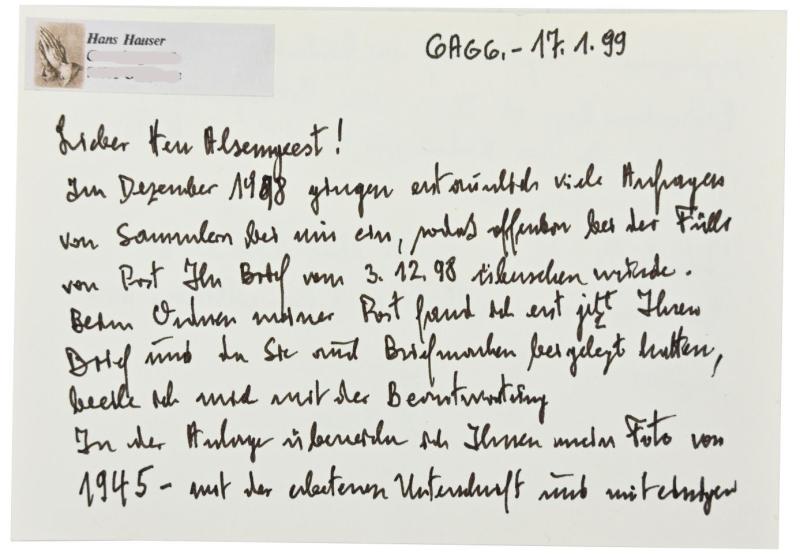 Hans Hauser
GAGG.- 17.1.99
Lieber Herr Alsemgeest!
Im Dezember 1998 gingen erstaunlich viele Anfragen
von Sammlern bei mir ein, sodaß offenbar bei der Fülle
von Post Ihr Brief vom 3.12.98 übersehen wurde.
Beim Ordnen meiner Post fand ich erst jetzt Ihren
Brief und da Sie auch Briefmarken beigelegt hatten,
beeile ich mich mit der Beantwortung
In der Anlage überreiche ich Ihnen mein Foto von
1945 - mit der erbetenen Unterschrift und mit einigen